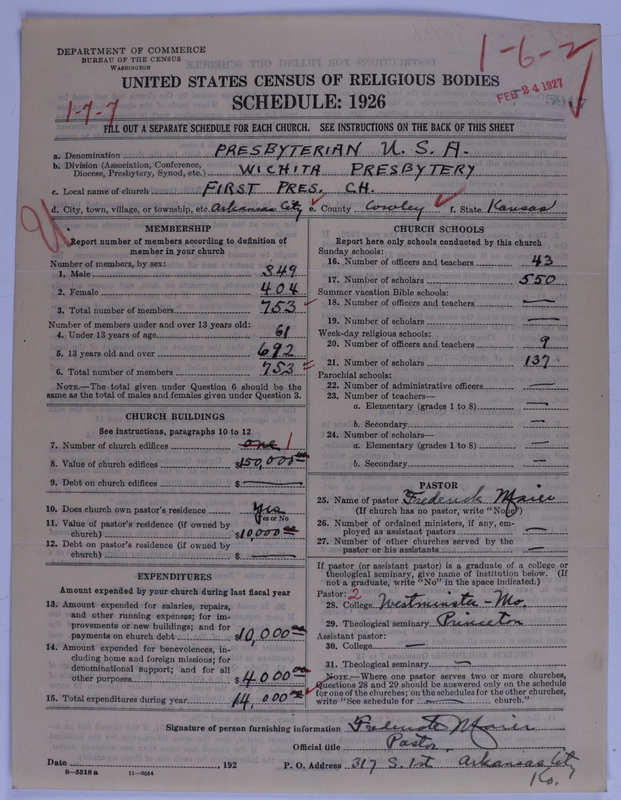 DEPARTMENT OF COMMERCE
BUREAU OF THE CENSUS
WASHINGTON
1-6-2
FEB 24 1927
UNITED STATES CENSUS OF RELIGIOUS BODIES
SCHEDULE: 1926
1-7-7
FILL OUT A SEPARATE SCHEDULE FOR EACH CHURCH. SEE INSTRUCTIONS ON THE BACK OF THIS SHEET
a. Denomination PRESBYTERIAN U.S.A.
b. Division (Association, Conference, Diocese, Presbytery, Synod, etc.) WICHITA PRESBYTERY
c. Local name of church FIRST PRES. CH.
d. City, town, village, or township, etc. Arkansas City e. County Cowley f. State Kansas
MEMBERSHIP
Report number of members according to definition of
member in your church
Number of members, by sex:
1. Male 349
2. Female 404
3. Total number of members 753
Number of members under and over 13 years old:
4. Under 13 years of age 61
5. 13 years old and over 692
6. Total number of members 753
NOTE.—The total given under Question 6 should be
same as the total of males and females given under Question 3.
CHURCH BUILDINGS
See instructions, paragraphs 10 to 12
7. Number of church edifices one 1
8. Value of church edifices $150,000.00
9. Debt on church edifices $ —
10. Does church own pastor's residence Yes
Yes or No
11. Value of pastor's residence (if owned by
church) $10,000
12. Debt on pastor's residence (if owned by
church) $ —
EXPENDITURES
Amount expended by your church during last fiscal year
13. Amount expended for salaries, repairs,
and other running expenses; for im-
provements or new buildings; and for
payments on church debt $10,000.00
14. Amount expended for benevolences, in-
cluding home and foreign missions; for
denominational support; and for all
other purposes $4000.00
15. Total expenditures during year 14,000.00
CHURCH SCHOOLS
Report here only schools conducted by this church
Sunday schools:
16. Number of officers and teachers 43
17. Number of scholars 550
Summer vacation Bible schools:
18. Number of officers and teachers —
19. Number of scholars —
Week-day religious schools:
20. Number of officers and teachers 9
21. Number of scholars 137
Parochial schools:
22. Number of administrative officers —
23. Number of teachers—
a. Elementary (grades 1 to 8) —
b. Secondary —
24. Number of scholars—
a. Elementary (grades 1 to 8) —
b. Secondary —
PASTOR
25. Name of pastor Frederick Maier
(If church has no pastor, write "None")
26. Number of ordained ministers, if any, em-
ployed as assistant pastors —
27. Number of other churches served by the
pastor or his assistants —
If pastor (or assistant pastor) is a graduate of a college or
theological seminary, give name of institution below. (If
not a graduate, write "No" in the space indicated.)
Pastor: 2
28. College Westminster - Mo.
29. Theological seminary Princeton
Assistant pastor:
30. College —
31. Theological seminary —
NOTE.—Where one pastor serves two or more churches,
Questions 28 and 29 should be answered only on the schedule
for one of the churches; on the schedules for the other churches,
write "See schedule for — church."
Signature of person furnishing information Maier
Official title Pastor
Date , 192 P. O. Address 317 S. 1st Arkansas City
Ko.
8-5518a 11-9054